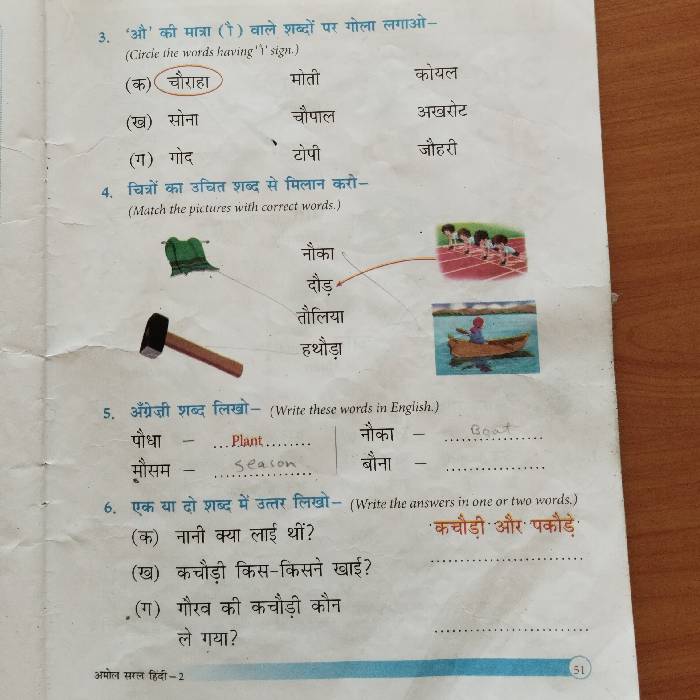 3. ‘औ’ की मात्रा (ौ) वाले शब्दों पर गोला लगाओ–
(Circle the words having 'ौ' sign.)
(क) चौराहा मोती कोयल
(ख) सोना चौपाल अखरोट
(ग) गोद टोपी जौहरी
4. चित्रों का उचित शब्द से मिलान करो–
(Match the pictures with correct words.)
नौका
दौड़
तौलिया
हथौड़ा
5. अँग्रेज़ी शब्द लिखो– (Write these words in English.)
पौधा – ...Plant........ नौका – Boat
मौसम – season बौना – ................
6. एक या दो शब्द में उत्तर लिखो– (Write the answers in one or two words.)
(क) नानी क्या लाई थीं? कचौड़ी और पकौड़े
(ख) कचौड़ी किस-किसने खाई? ........................
(ग) गौरव की कचौड़ी कौन
ले गया? ........................
अमोल सरल हिंदी – 2 51